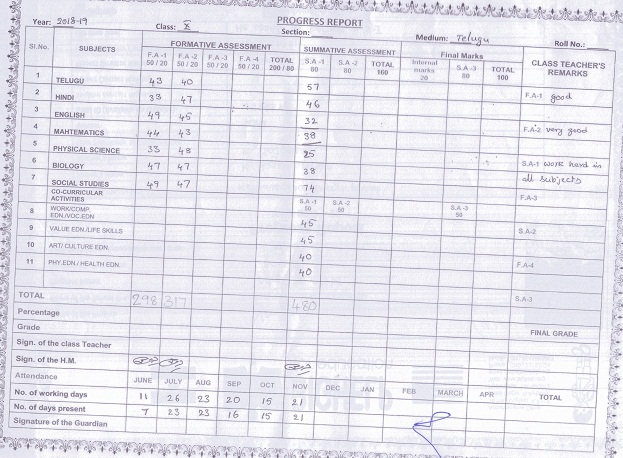 PROGRESS REPORT
Year: 2018-19 Class: X Section: Medium: Telugu Roll No.:
Sl.No. SUBJECTS FORMATIVE ASSESSMENT SUMMATIVE ASSESSMENT Final Marks CLASS TEACHER'S REMARKS
F.A -1 50 / 20 F.A -2 50 / 20 F.A -3 50 / 20 F.A -4 50 / 20 TOTAL 200 / 80 S.A -1 80 S.A -2 80 TOTAL 160 Internal marks 20 S.A -3 80 TOTAL 100
1 TELUGU 43 40 57 F.A-1 good
2 HINDI 33 47 46
3 ENGLISH 49 45 32 F.A-2 very good
4 MAHTEMATICS 44 43 38
5 PHYSICAL SCIENCE 33 48 25 S.A-1 work hard in
6 BIOLOGY 47 47 38 all subjects
7 SOCIAL STUDIES 49 47 74 F.A-3
CO-CURRICULAR ACTIVITIES S.A -1 50 S.A -2 50 S.A -3 50
8 WORK/COMP. EDN./VOC.EDN 45 S.A-2
9 VALUE EDN./LIFE SKILLS 45
10 ART/ CULTURE EDN. 40 F.A-4
11 PHY.EDN / HEALTH EDN. 40
TOTAL 298 317 480 S.A-3
Percentage
Grade FINAL GRADE
Sign. of the class Teacher
Sign. of the H.M.
Attendance JUNE JULY AUG SEP OCT NOV DEC JAN FEB MARCH APR TOTAL
No. of working days 11 26 23 20 15 21
No. of days present 7 23 23 16 15 21
Signature of the Guardian